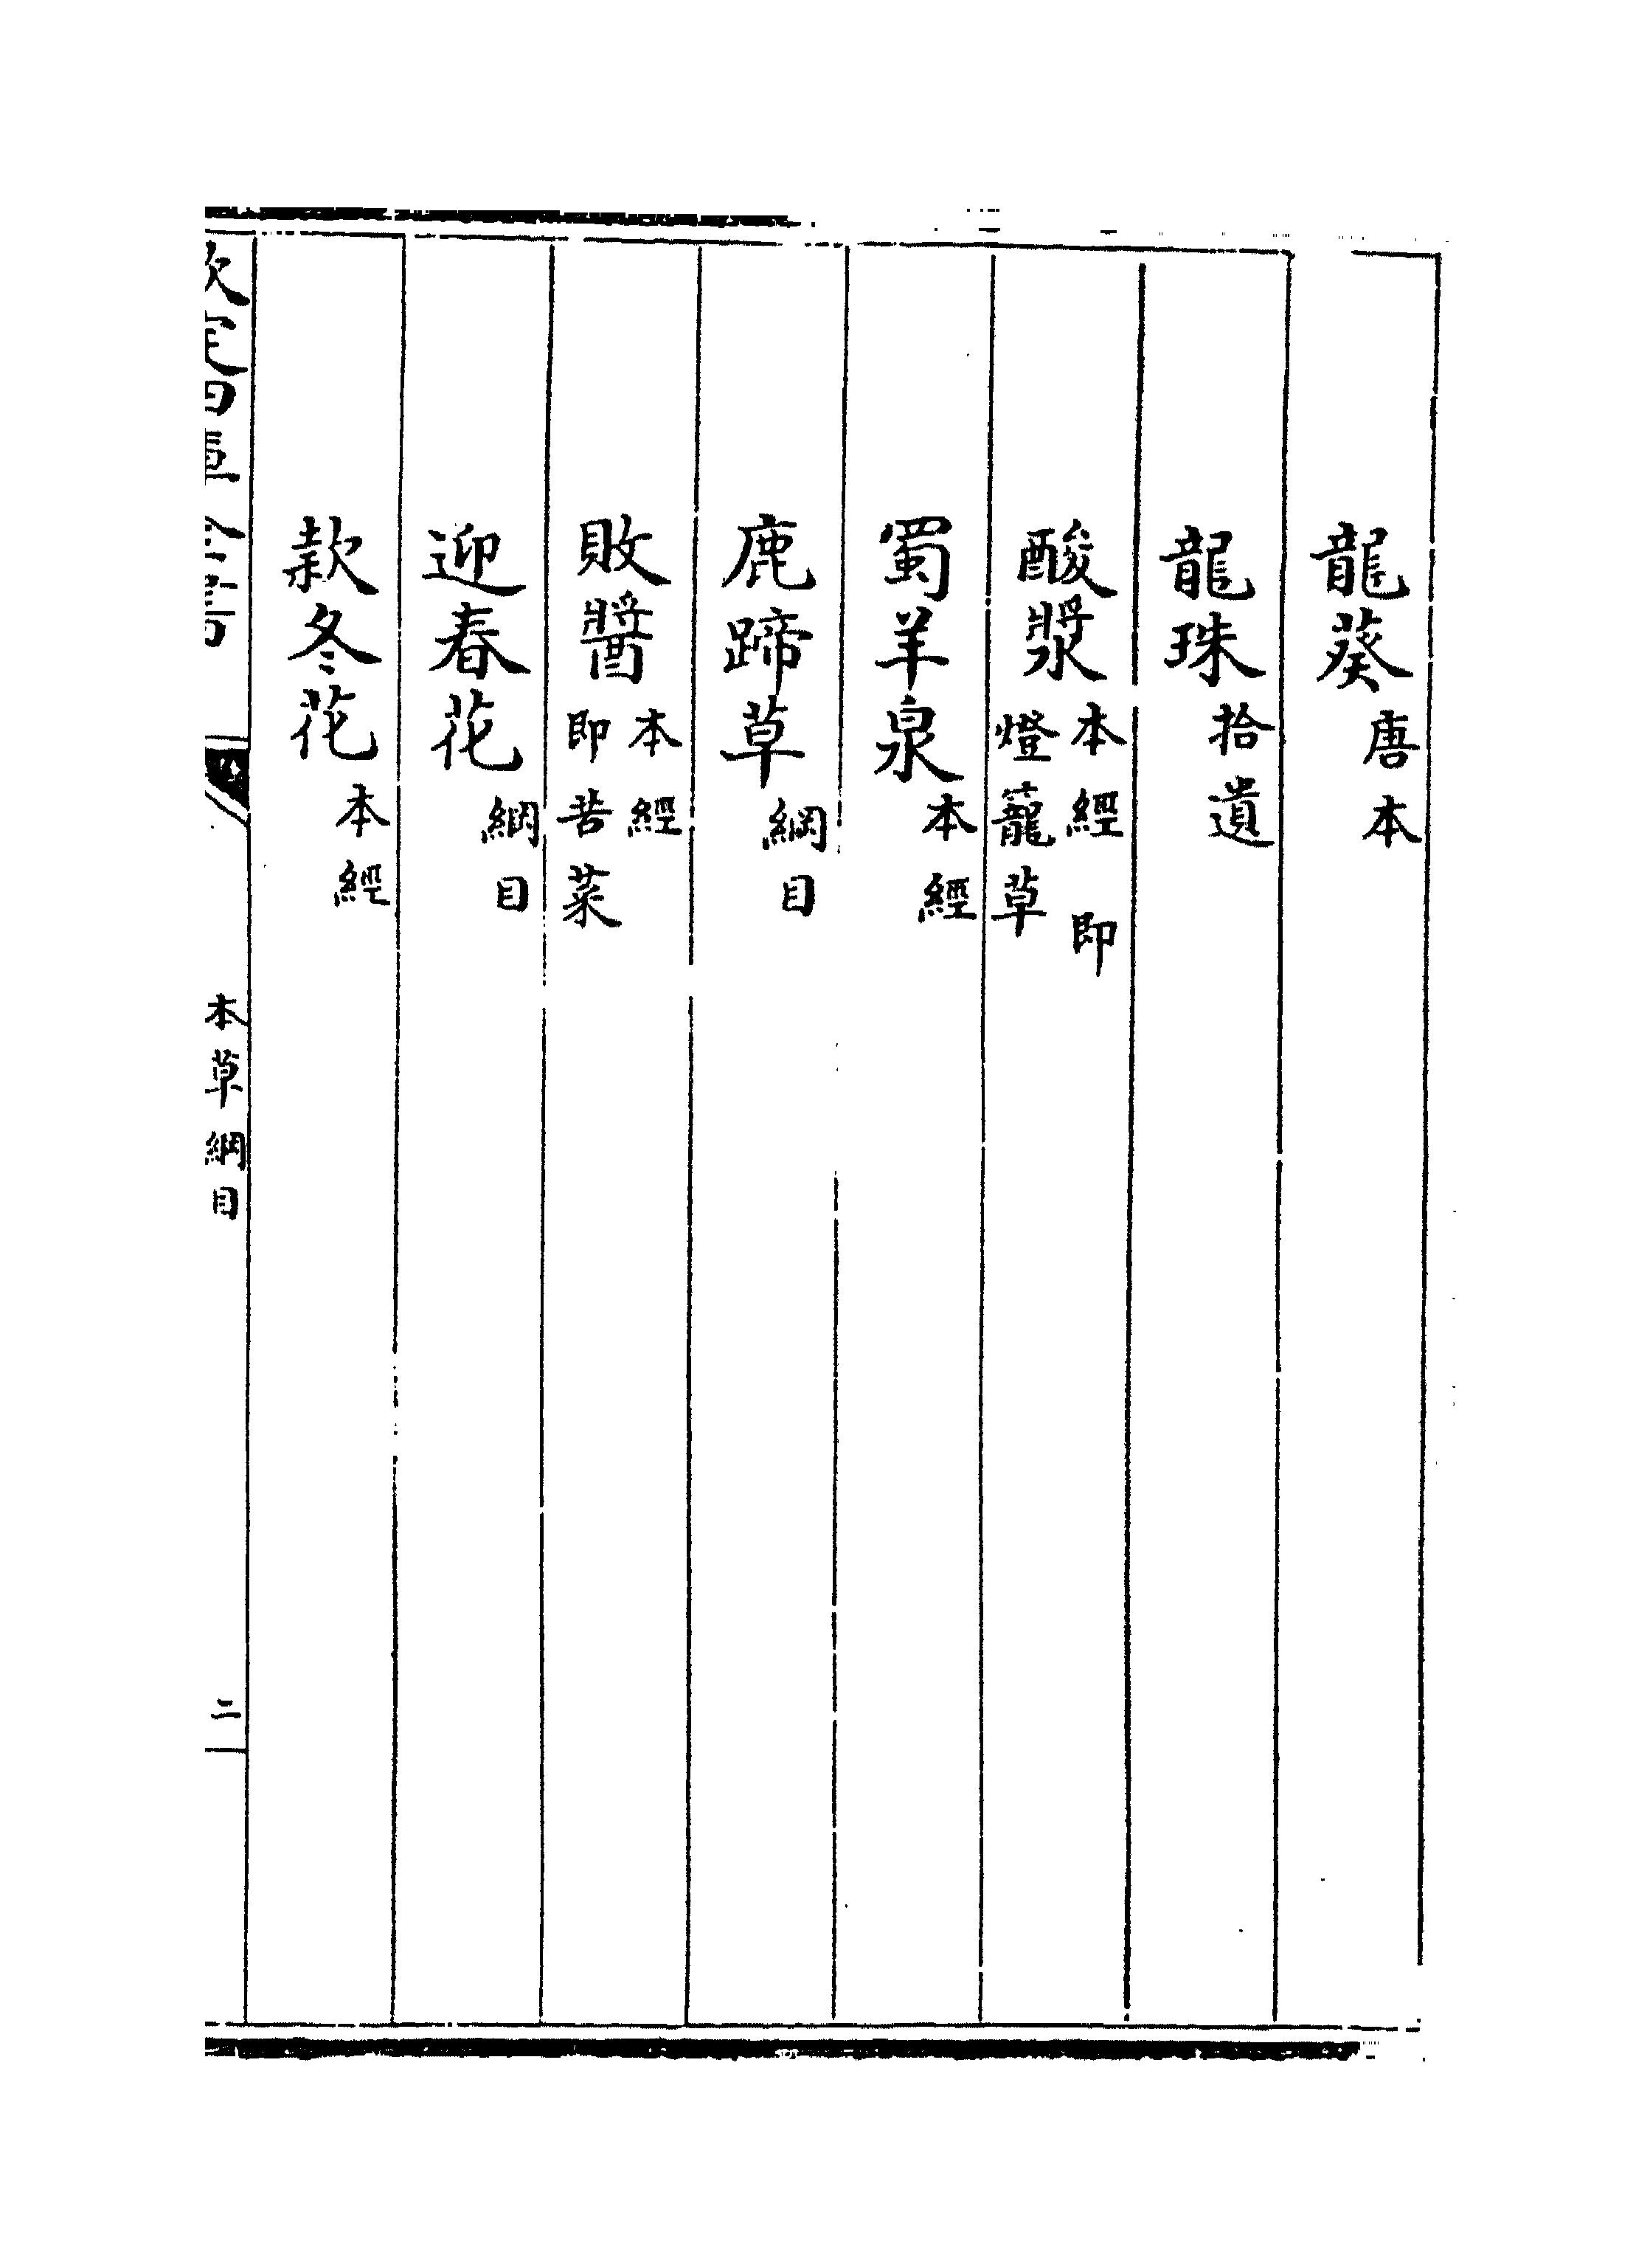 龍葵唐本
龍珠拾遺
酸漿本經 即
燈籠草
蜀羊泉本經
鹿蹄草綱目
敗醬本經
即苦菜
迎春花綱目
款冬花本經
欽定四庫全書
本草綱目
二